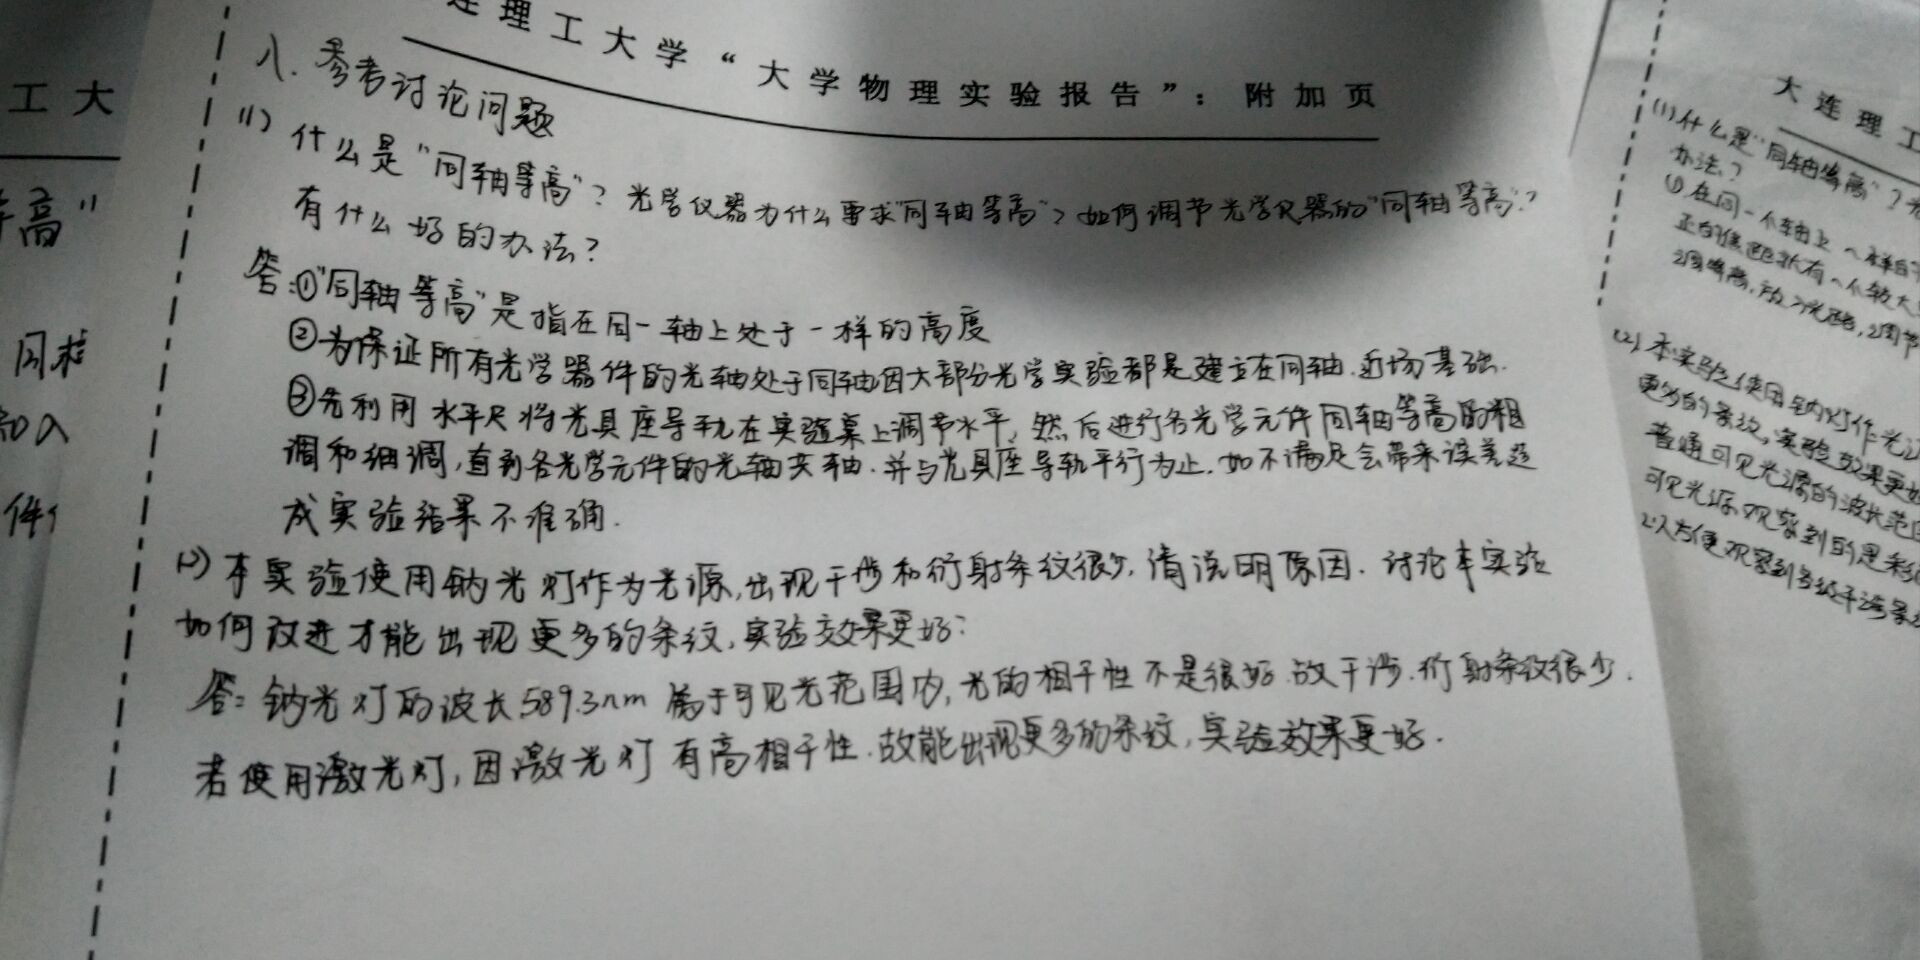 连理工大学“大学物理实验报告”：附加页
八.参考讨论问题
(1) 什么是“同轴等高”？光学仪器为什么要求“同轴等高”？如何调节光学仪器的“同轴等高”？
有什么好的办法？
答：①“同轴等高”是指在同一轴上处于一样的高度
②为保证所有光学器件的光轴处于同轴因大部分光学实验都是建立在同轴.近场基础.
③先利用水平尺将光具座导轨在实验桌上调节水平，然后进行各光学元件同轴等高的粗
调和细调，直到各光学元件的光轴共轴.并与光具座导轨平行为止.如不满足会带来误差造
成实验结果不准确.
(2) 本实验使用钠光灯作为光源,出现干涉和衍射条纹很少,请说明原因.讨论本实验
如何改进才能出现更多的条纹,实验效果更好:
答：钠光灯的波长589.3nm 属于可见光范围内,光的相干性不是很好.故干涉.衍射条纹很少.
若使用激光灯,因激光灯有高相干性.故能出现更多的条纹,实验效果更好.
工大
高”
件
大连理工
(1)什么是“同轴等高”？
办法？
① 在同一个轴上一样
(2) 本实验使用钠灯作光
更多的条纹,实验效果更好
普通可见光源的波长范围
可见光源观察到的是